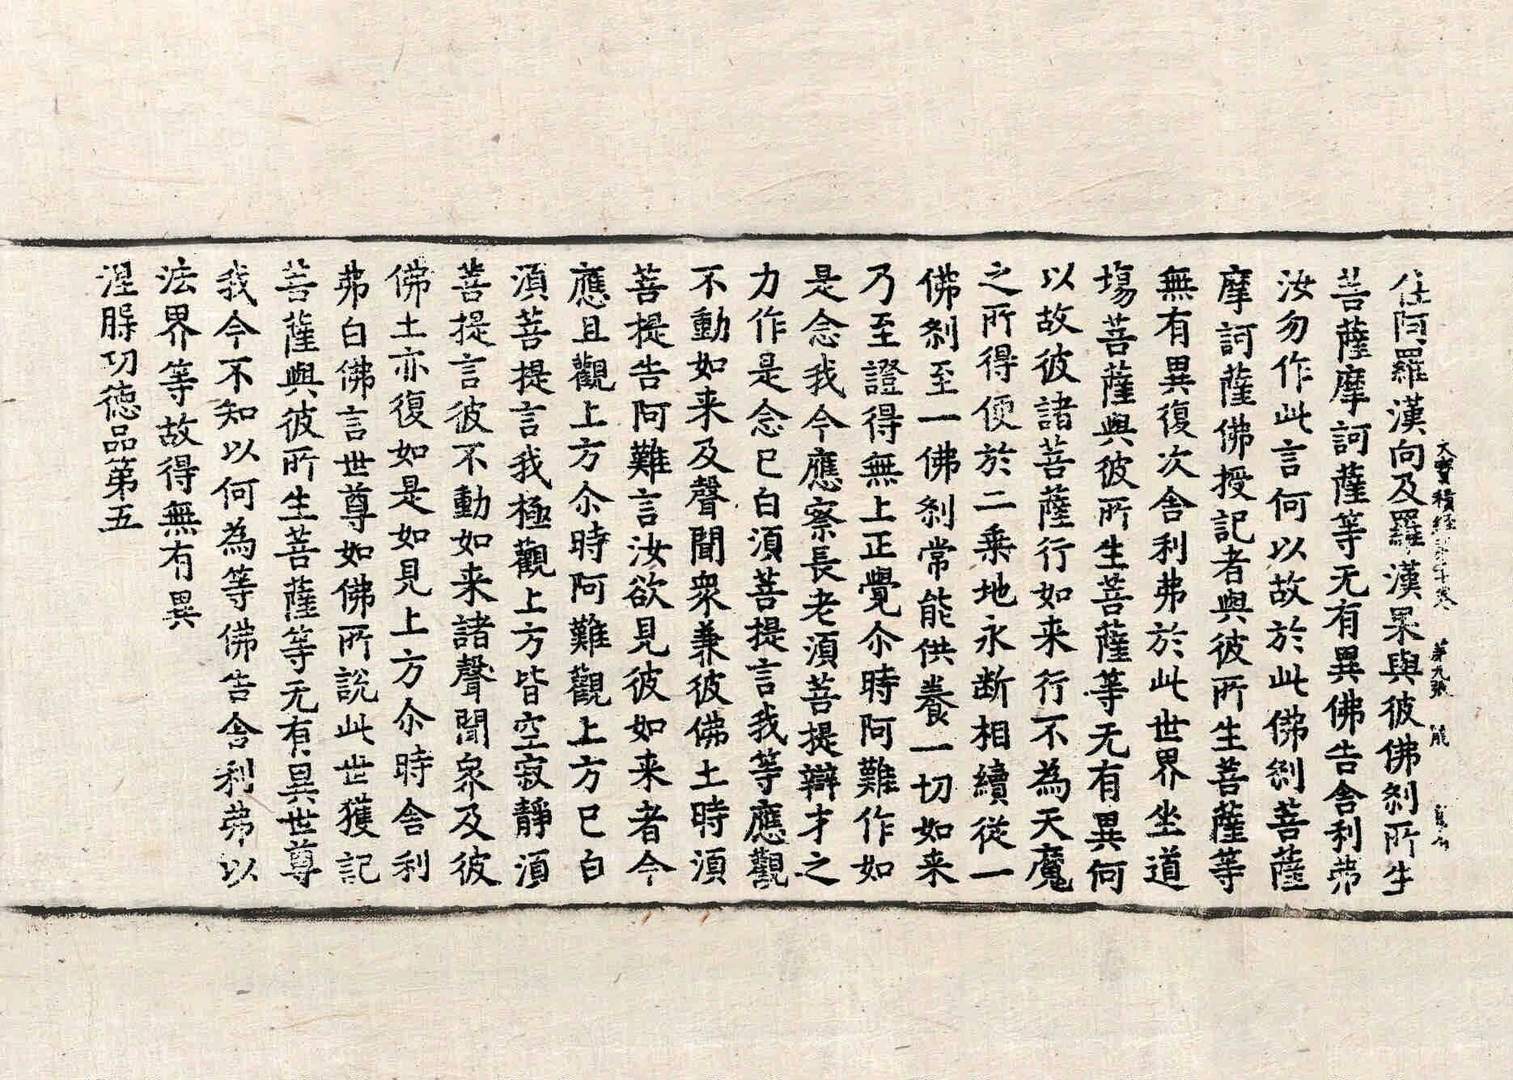 大寶積經 第九張
住阿羅漢向及羅漢果與彼佛刹所生
菩薩摩訶薩等无有異佛告舍利弗
汝勿作此言何以故於此佛刹菩薩
摩訶薩佛授記者與彼所生菩薩等
無有異復次舍利弗於此世界坐道
場菩薩與彼所生菩薩等无有異何
以故彼諸菩薩行如来行不為天魔
之所得便於二乗地永断相續從一
佛刹至一佛刹常能供養一切如来
乃至證得無上正覺尒時阿難作如
是念我今應察長老湏菩提辯才之
力作是念已白湏菩提言我等應觀
不動如来及聲聞衆兼彼佛土時湏
菩提告阿難言汝欲見彼如来者今
應且觀上方尒時阿難觀上方已白
湏菩提言我極觀上方皆空寂靜湏
菩提言彼不動如来諸聲聞衆及彼
佛土亦復如是如見上方尒時舍利
弗白佛言世尊如佛所說此世獲記
菩薩與彼所生菩薩等无有異世尊
我今不知以何為等佛告舍利弗以
法界等故得無有異
涅槃功徳品第五